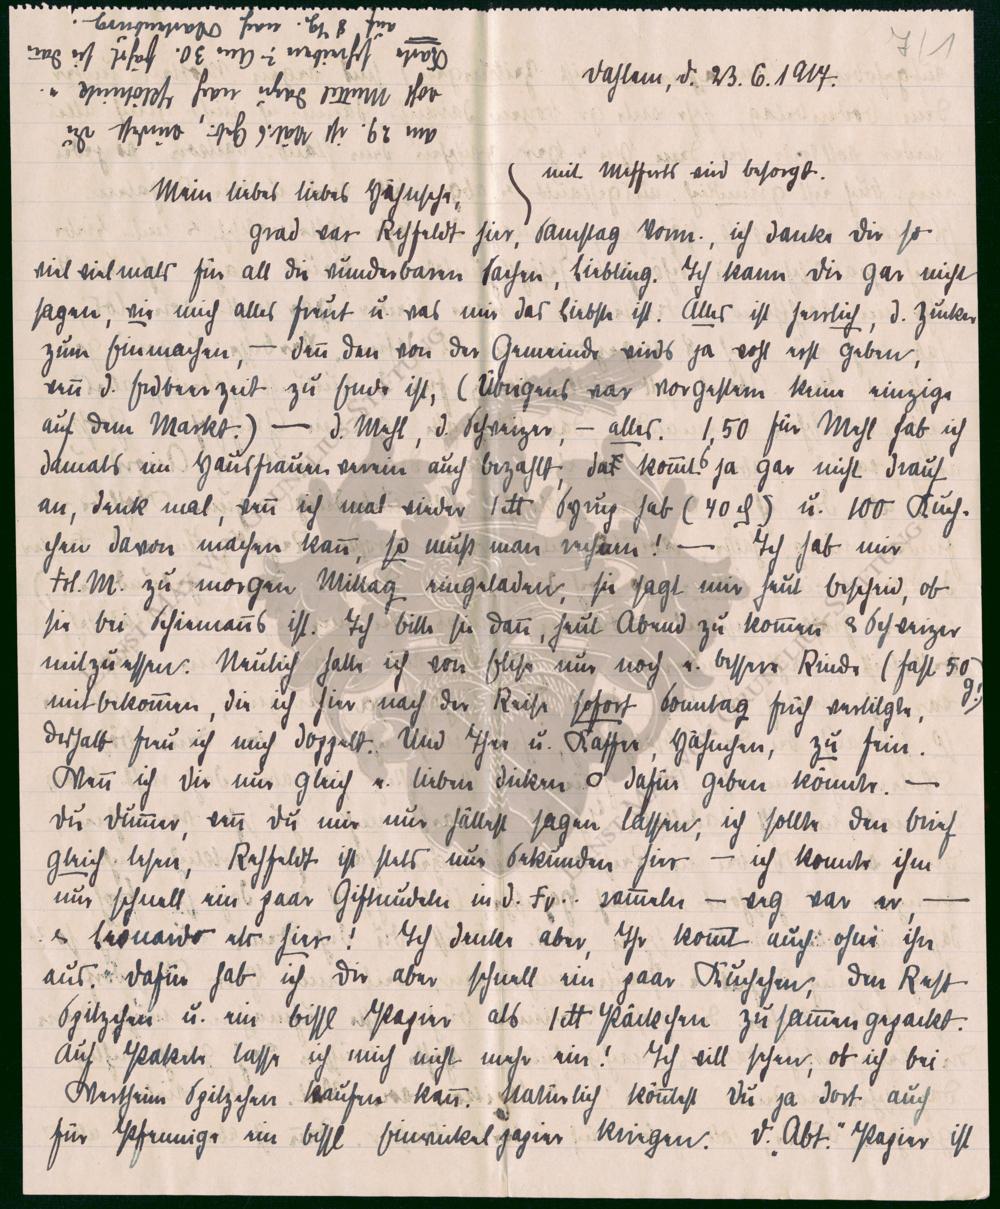 7/1
Dahlem, d. 23.6.1917.
am 29. ist Käte's Geb., kannst du
Karte schreiben? Am 30. fährt sie dann
auf 8 Tg. nach Marienburg.
mit Mefferts wird besorgt.
Mein liebes liebes Hähnsche,
grad war Rehfeldt hier, Samstag Vorm., ich danke Dir so
viel vielmals für all die wunderbaren Sachen, Liebling. Ich kann Dir gar nicht
sagen, wie mich alles freut u. was mir das Liebste ist. Alles ist herrlich, d. Zucker
zum Einmachen, — deñ den von der Gemeinde wirds ja wohl erst geben,
weñ d. Erdbeerzeit zu Ende ist, (Übrigens war vorgestern keine einzige
auf dem Markt.) — d. Mehl, d. Schweizer, — alles. 1,50 für Mehl hab ich
damals im Hausfrauenverein auch bezahlt, da kom̄ts ja gar nicht drauf
an, denk mal, weñ ich mal wieder 1 ℔ Syrup hab (40 ₰) u. 100 Kuch-
chen davon machen kañ, so muß man rechnen! — Ich hab mir
Frl. M. zu morgen Mittag eingeladen, sie sagt mir heut bescheid, ob
sie bei Schiemañs ist. Ich bitte sie dañ, heut Abend zu kom̄en & Schweizer
mitzuessen. Neulich hatte ich von Elise nur noch e. bessere Rinde (fast 50 g!)
mitbekom̄en, die ich hier nach der Reise sofort Sonntag früh vertilgte,
deshalb freu ich mich doppelt. Und Thee u. Kaffee, Hähnchen, zu fein.
Weñ ich Dir nur gleich e. lieben dicken o dafür geben könnte. —
Du Dum̄er, weñ Du mir nur hättest sagen lassen, ich sollte den brief
gleich lesen, Rehfeldt ist stets nur Sekunden hier — ich konnte ihm
nur schnell ein paar Giftnudeln in d. — weg war er, —
& Leonardo als hier! Ich denke aber, Ihr kom̄t auch ohne ihn
aus. Dafür hab ich Dir aber schnell ein paar Kuchchen, den Rest
Spitzchen u. ein bissl Papier als 1 ℔ Päckchen zusam̄engepackt.
Auf Pakete lasse ich mich nicht mehr ein! Ich will sehen, ob ich bei
Wertheim Spitzchen kaufen kañ. Natürlich könntest Du ja dort auch
für Pfennige ein bissl Einwickelpapier kriegen. D. „Abt." Papier ist